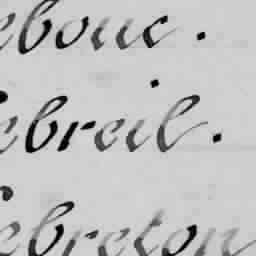 ebouc.
ebreil.
ebreton